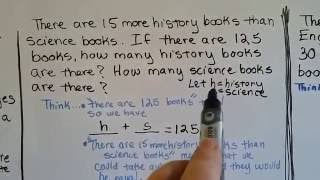 There are 15 more history books than
science books. If there are 125
books, how many history books
are there? How many science books
are there?
Let h=history
=science
Think... "There are 125 books"
so we have
h + s = 125
"There are 15 more history books than
science books"
could take
they would
The
Eng
30